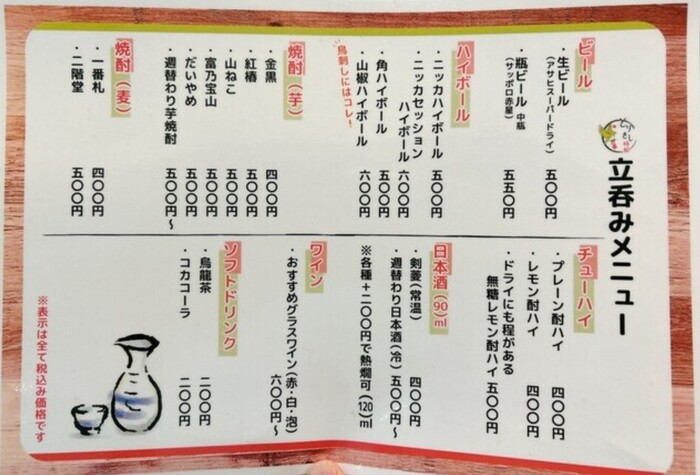 立呑みメニュー
ビール
・生ビール 五〇〇円
(アサヒスーパードライ)
・瓶ビール 中瓶 五五〇円
(サッポロ赤星)
ハイボール
・ニッカハイボール 五〇〇円
・ニッカセッション
ハイボール 六〇〇円
・角ハイボール 五〇〇円
・山椒ハイボール 六〇〇円
鳥刺しにはコレ!
焼酎(芋)
・金黒 四〇〇円
・紅椿 五〇〇円
・山ねこ 五〇〇円
・富乃宝山 五〇〇円
・だいやめ 五〇〇円
・週替わり芋焼酎 五〇〇円〜
焼酎(麦)
・一番札 四〇〇円
・二階堂 五〇〇円
チューハイ
・プレーン酎ハイ 四〇〇円
・レモン酎ハイ 四〇〇円
・ドライにも程がある
無糖レモン酎ハイ 五〇〇円
日本酒(90)ml
・剣菱(常温) 四〇〇円
・週替わり日本酒(冷) 五〇〇円〜
※各種+二〇〇円で熱燗可(120)ml
ワイン
・おすすめグラスワイン(赤・白・泡)
六〇〇円〜
ソフトドリンク
・烏龍茶 二〇〇円
・コカコーラ 二〇〇円
※表示は全て税込み価格です